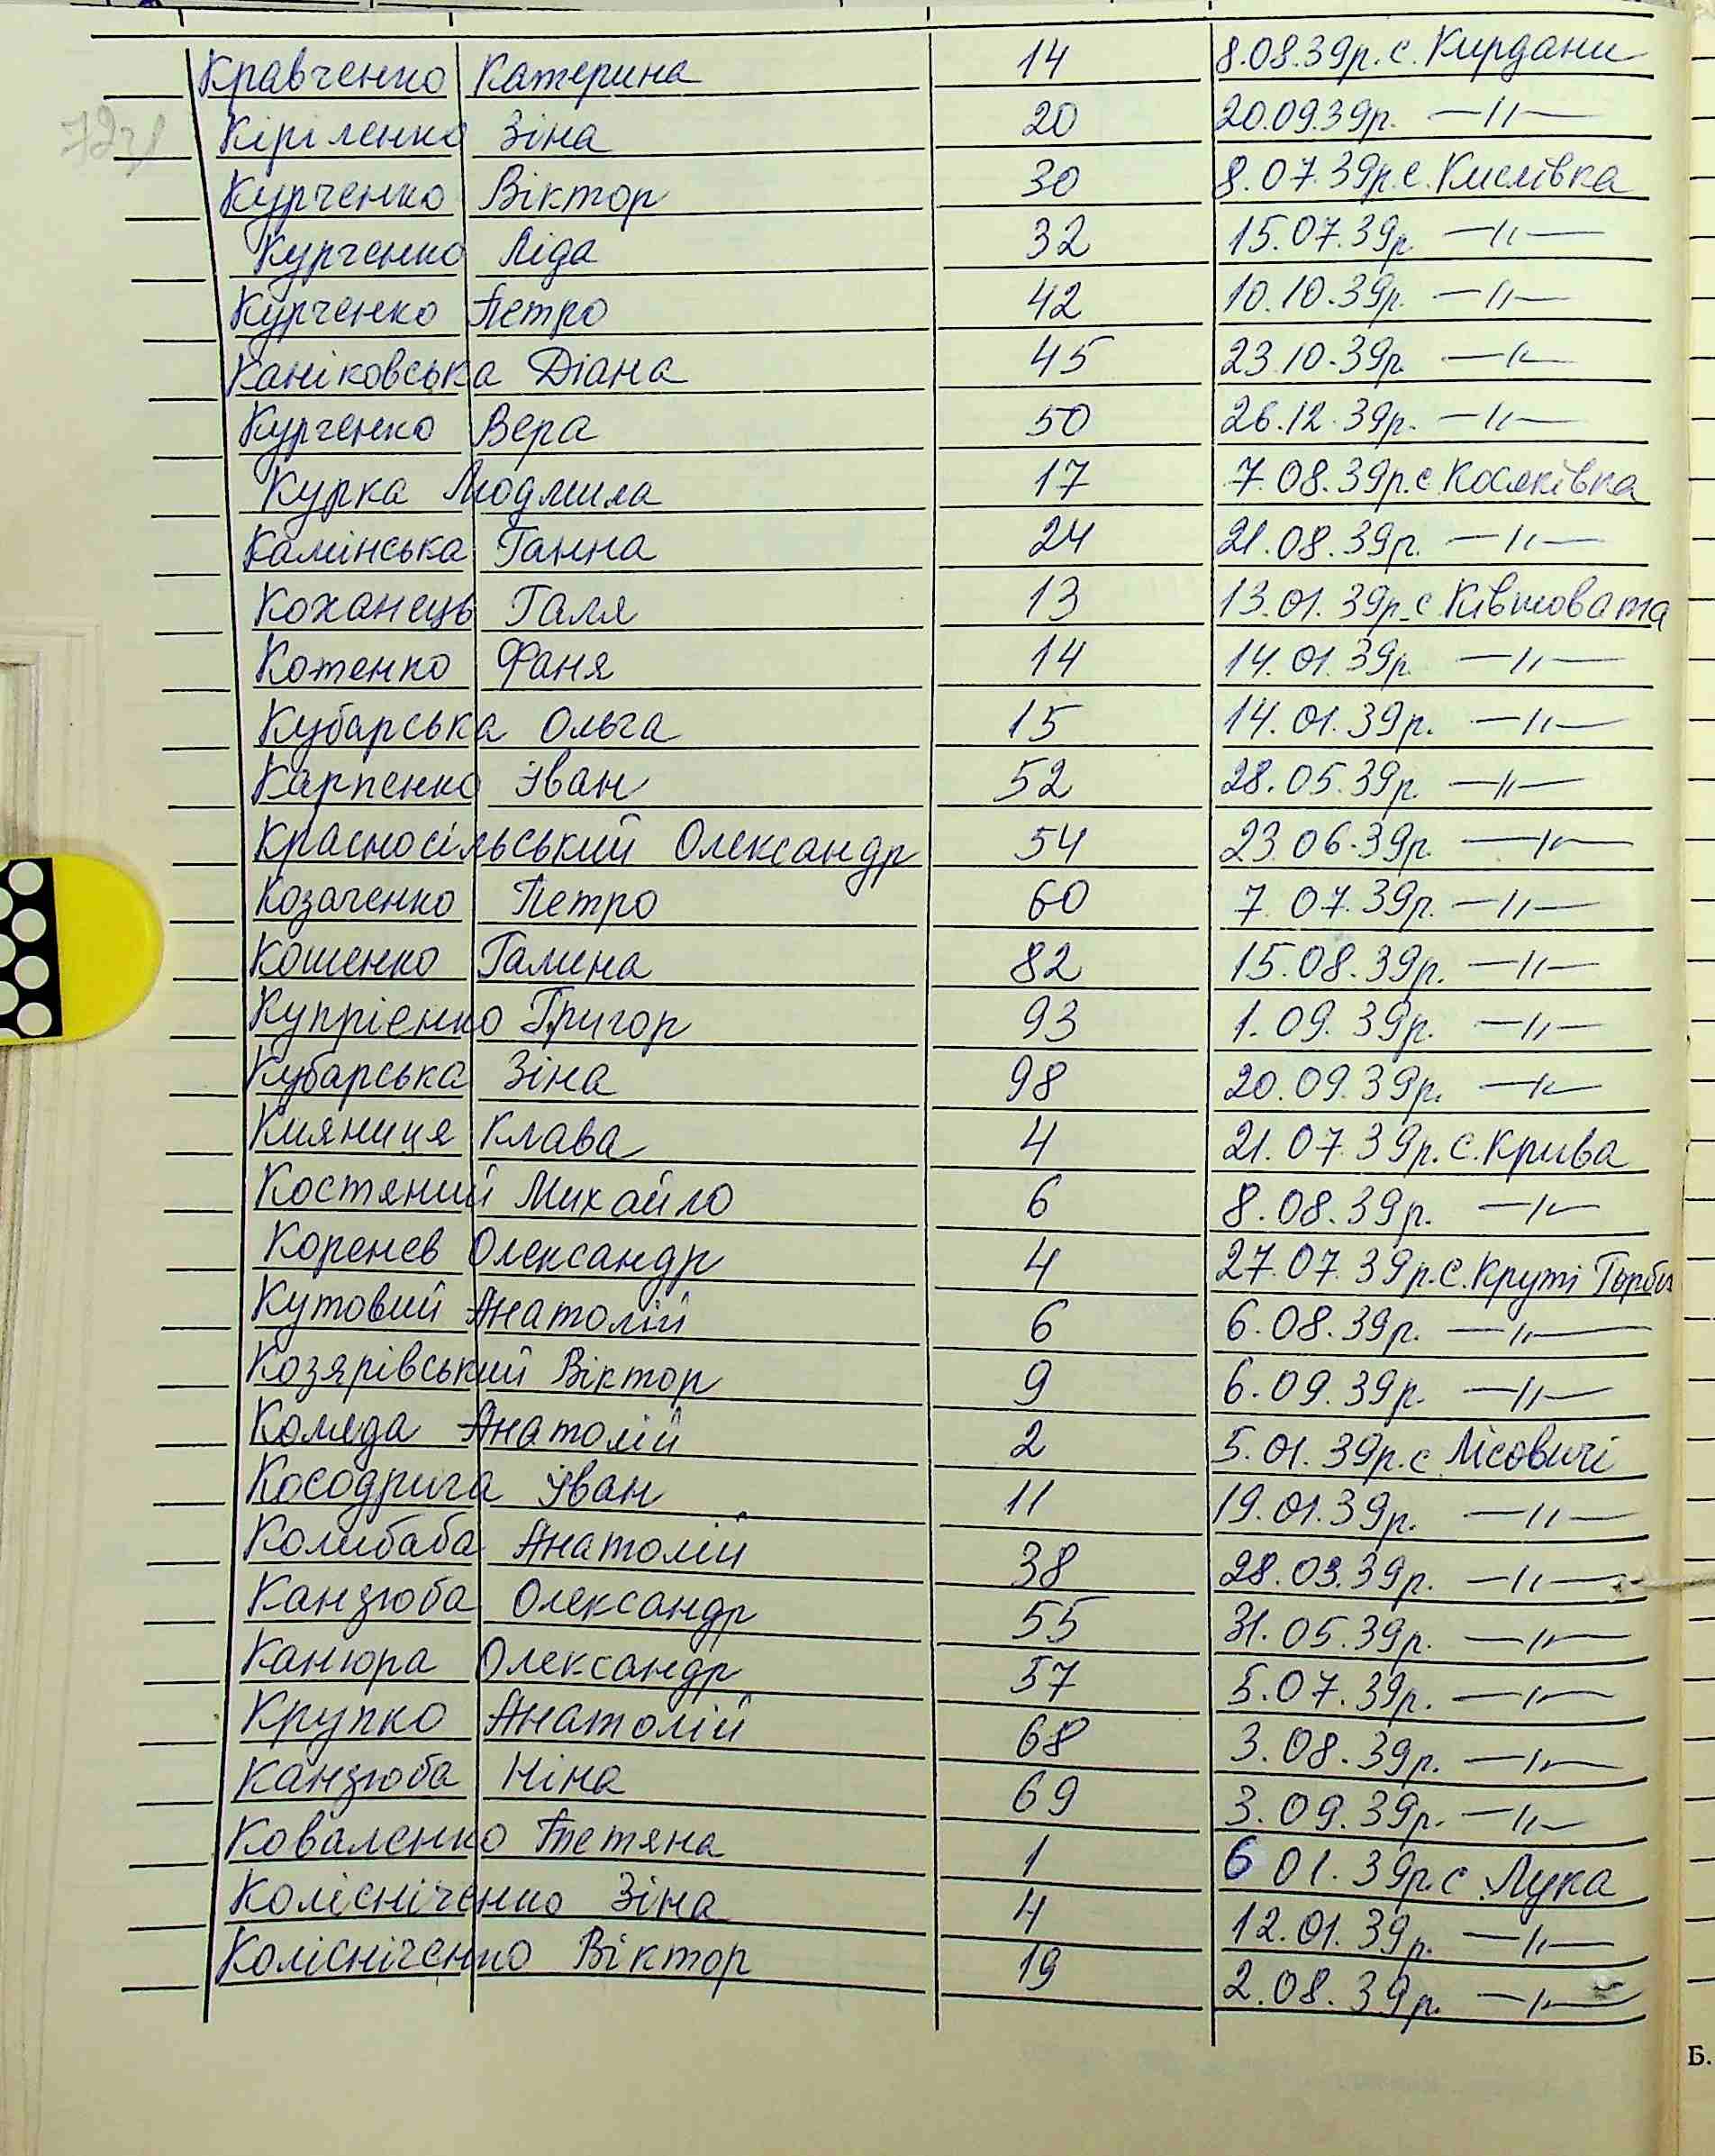 Кравченко Катерина 14 8.08.39р. с. Кирдани
Кіріленко Зіна 20 20.09.39р. —"—
Курченко Віктор 30 8.07.39р. с. Кислівка
Курченко Ліда 32 15.07.39р. —"—
Курченко Петро 42 10.10.39р. —"—
Каніковська Діана 45 23.10.39р. —"—
Курченко Вера 50 26.12.39р. —"—
Курка Людмила 17 7.08.39р. с Косяківка
Камінська Ганна 24 21.08.39р. —"—
Коханець Галя 13 13.01.39р. с. Ківшовата
Котенко Фаня 14 14.01.39р. —"—
Кубарська Ольга 15 14.01.39р. —"—
Карпенко Іван 52 28.05.39р. —"—
Красносільський Олександр 54 23.06.39р. —"—
Козаченко Петро 60 7.07.39р. —"—
Кошенко Галина 82 15.08.39р. —"—
Купрієнко Григор 93 1.09.39р. —"—
Кубарська Зіна 98 20.09.39р. —"—
Кияниця Клава 4 21.07.39р. с. Крива
Костяний Михайло 6 8.08.39р. —"—
Коренев Олександр 4 27.07.39р. с. Круті Горби
Кутовий Анатолій 6 6.08.39р. —"—
Козярівський Віктор 9 6.09.39р. —"—
Коляда Анатолій 2 5.01.39р. с Лісовичі
Косодрига Іван 11 19.01.39р. —"—
Колибаба Анатолій 38 28.03.39р. —"—
Канзюба Олександр 55 31.05.39р. —"—
Канюра Олександр 57 5.07.39р. —"—
Крупко Анатолій 68 3.08.39р. —"—
Канзюба Ніна 69 3.09.39р. —"—
Коваленко Тетяна 1 6 01.39р. с. Лука
Колісніченко Зіна 4 12.01.39р. —"—
Колісніченко Віктор 19 2.08.39р. —"—
Б.